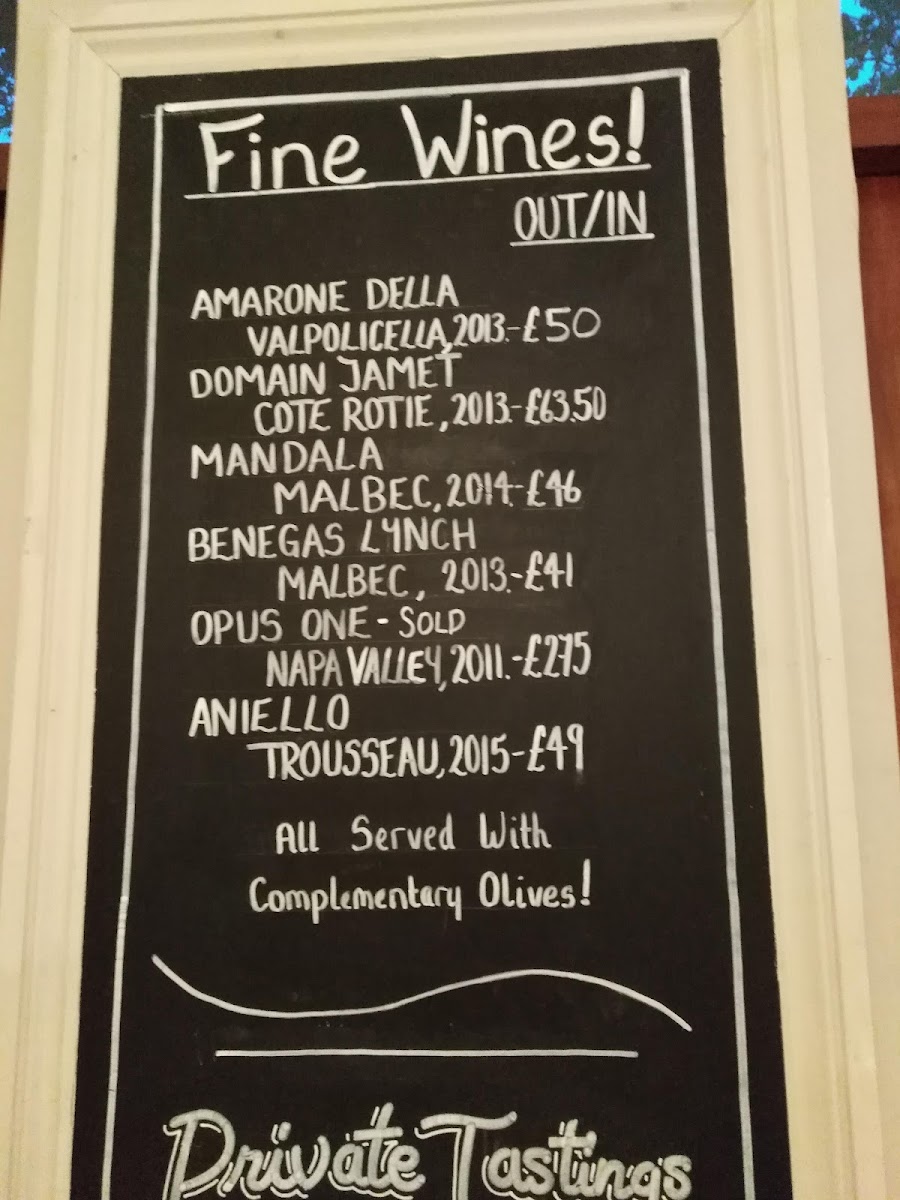 Fine Wines!
OUT/IN
AMARONE DELLA
VALPOLICELLA, 2013.-£50
DOMAIN JAMET
COTE ROTIE, 2013.-£63.50
MANDALA
MALBEC, 2014-£46
BENEGAS LYNCH
MALBEC, 2013.-£41
OPUS ONE - SOLD
NAPA VALLEY, 2011.-£275
ANIELLO
TROUSSEAU, 2015-£49
All Served With
Complementary Olives!
Private Tastings